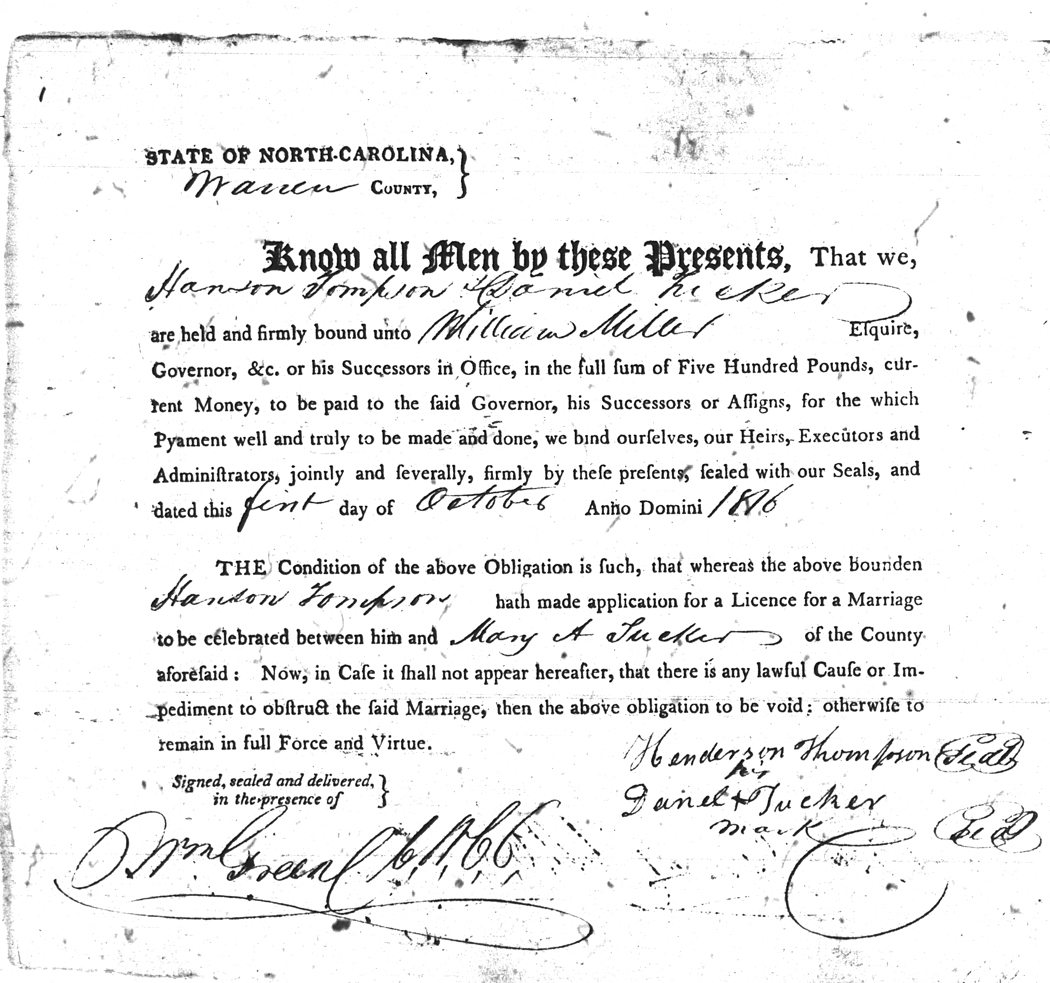 STATE OF NORTH-CAROLINA, }
Warren COUNTY,
Know all Men by these Presents, That we,
Hanson Tompson & Daniel Tucker
are held and firmly bound unto William Miller Eſquire,
Governor, &c. or his Succeſſors in Office, in the full ſum of Five Hundred Pounds, cur-
rent Money, to be paid to the ſaid Governor, his Succeſſors or Aſſigns, for the which
Pyament well and truly to be made and done, we bind ourſelves, our Heirs, Executors and
Adminiſtrators, jointly and ſeverally, firmly by theſe preſents, ſealed with our Seals, and
dated this first day of October Anno Domini 1816
THE Condition of the above Obligation is ſuch, that whereas the above bounden
Hanson Tompson hath made application for a Licence for a Marriage
to be celebrated between him and Mary A Tucker of the County
aforeſaid : Now, in Caſe it ſhall not appear hereafter, that there is any lawful Cauſe or Im-
pediment to obſtruct the ſaid Marriage, then the above obligation to be void; otherwiſe to
remain in full Force and Virtue.
Henderson Thompson Seal
Signed, sealed and delivered, }
in the presence of
his
Danel + Tucker Seal
mark
Wm Green